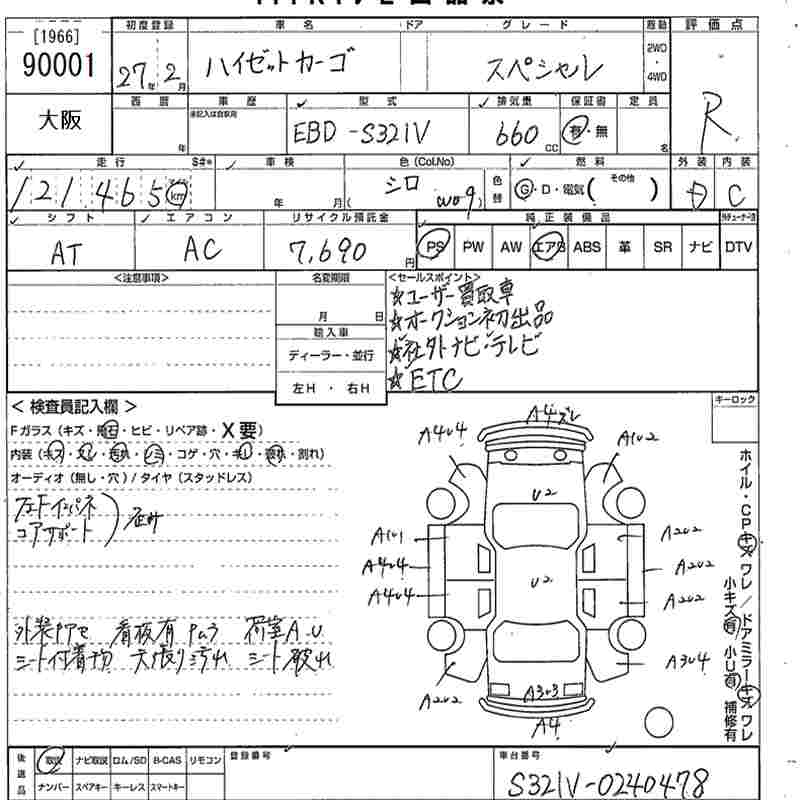 [1966]
90001
大阪
初度登録 車名 ドア グレード 駆動 評価点
27年 2月 ハイゼットカーゴ スペシャル 2WD・4WD R
西暦 車歴 型式 排気量 保証書 定員
年 未記入は自家用 EBD-S321V 660 CC 有・無 名
走行 車検 色(Col.No) 燃料 外装 内装
121465 km 年 月 ( シロ W09 ) 色替 G・D・電気 ( その他 ) D C
シフト エアコン リサイクル預託金 純正装備品
AT AC 7,690 円 PS PW AW エアB ABS 革 SR ナビ DTV
<注意事項> 名変期限 <セールスポイント>
月 日 ☆ユーザー買取車
輸入車 ☆オークション初出品
ディーラー・並行 ☆社外ナビ・テレビ
左H ・ 右H ☆ETC
< 検査員記入欄 > キーロック
Fガラス (キズ・飛石・ヒビ・リペア跡・X要)
内装 (キズ・スレ・汚れ・シミ・コゲ・穴・キレ・破れ・割れ)
オーディオ (無し・穴) / タイヤ (スタッドレス)
左Fインパネ
コアサポート
外装 看板有 荷室A.U
シート付着物 天張り汚れ シート破れ
A4ズレ
A4U4 A1U2
U2
A1U1 A2U2
A4U4 U2 A2U2
A4U4 A2U2
A3U4
A2U2 A3U3
A4
ホイル・CPキズワレ/ドアミラーキズワレ
小キズ有 小U有 補修有
後送品 取説 ナビ取説 ロム/SD B-CAS リモコン 登録番号 車台番号
ナンバー スペアキー キーレス スマートキー S321V-0240478